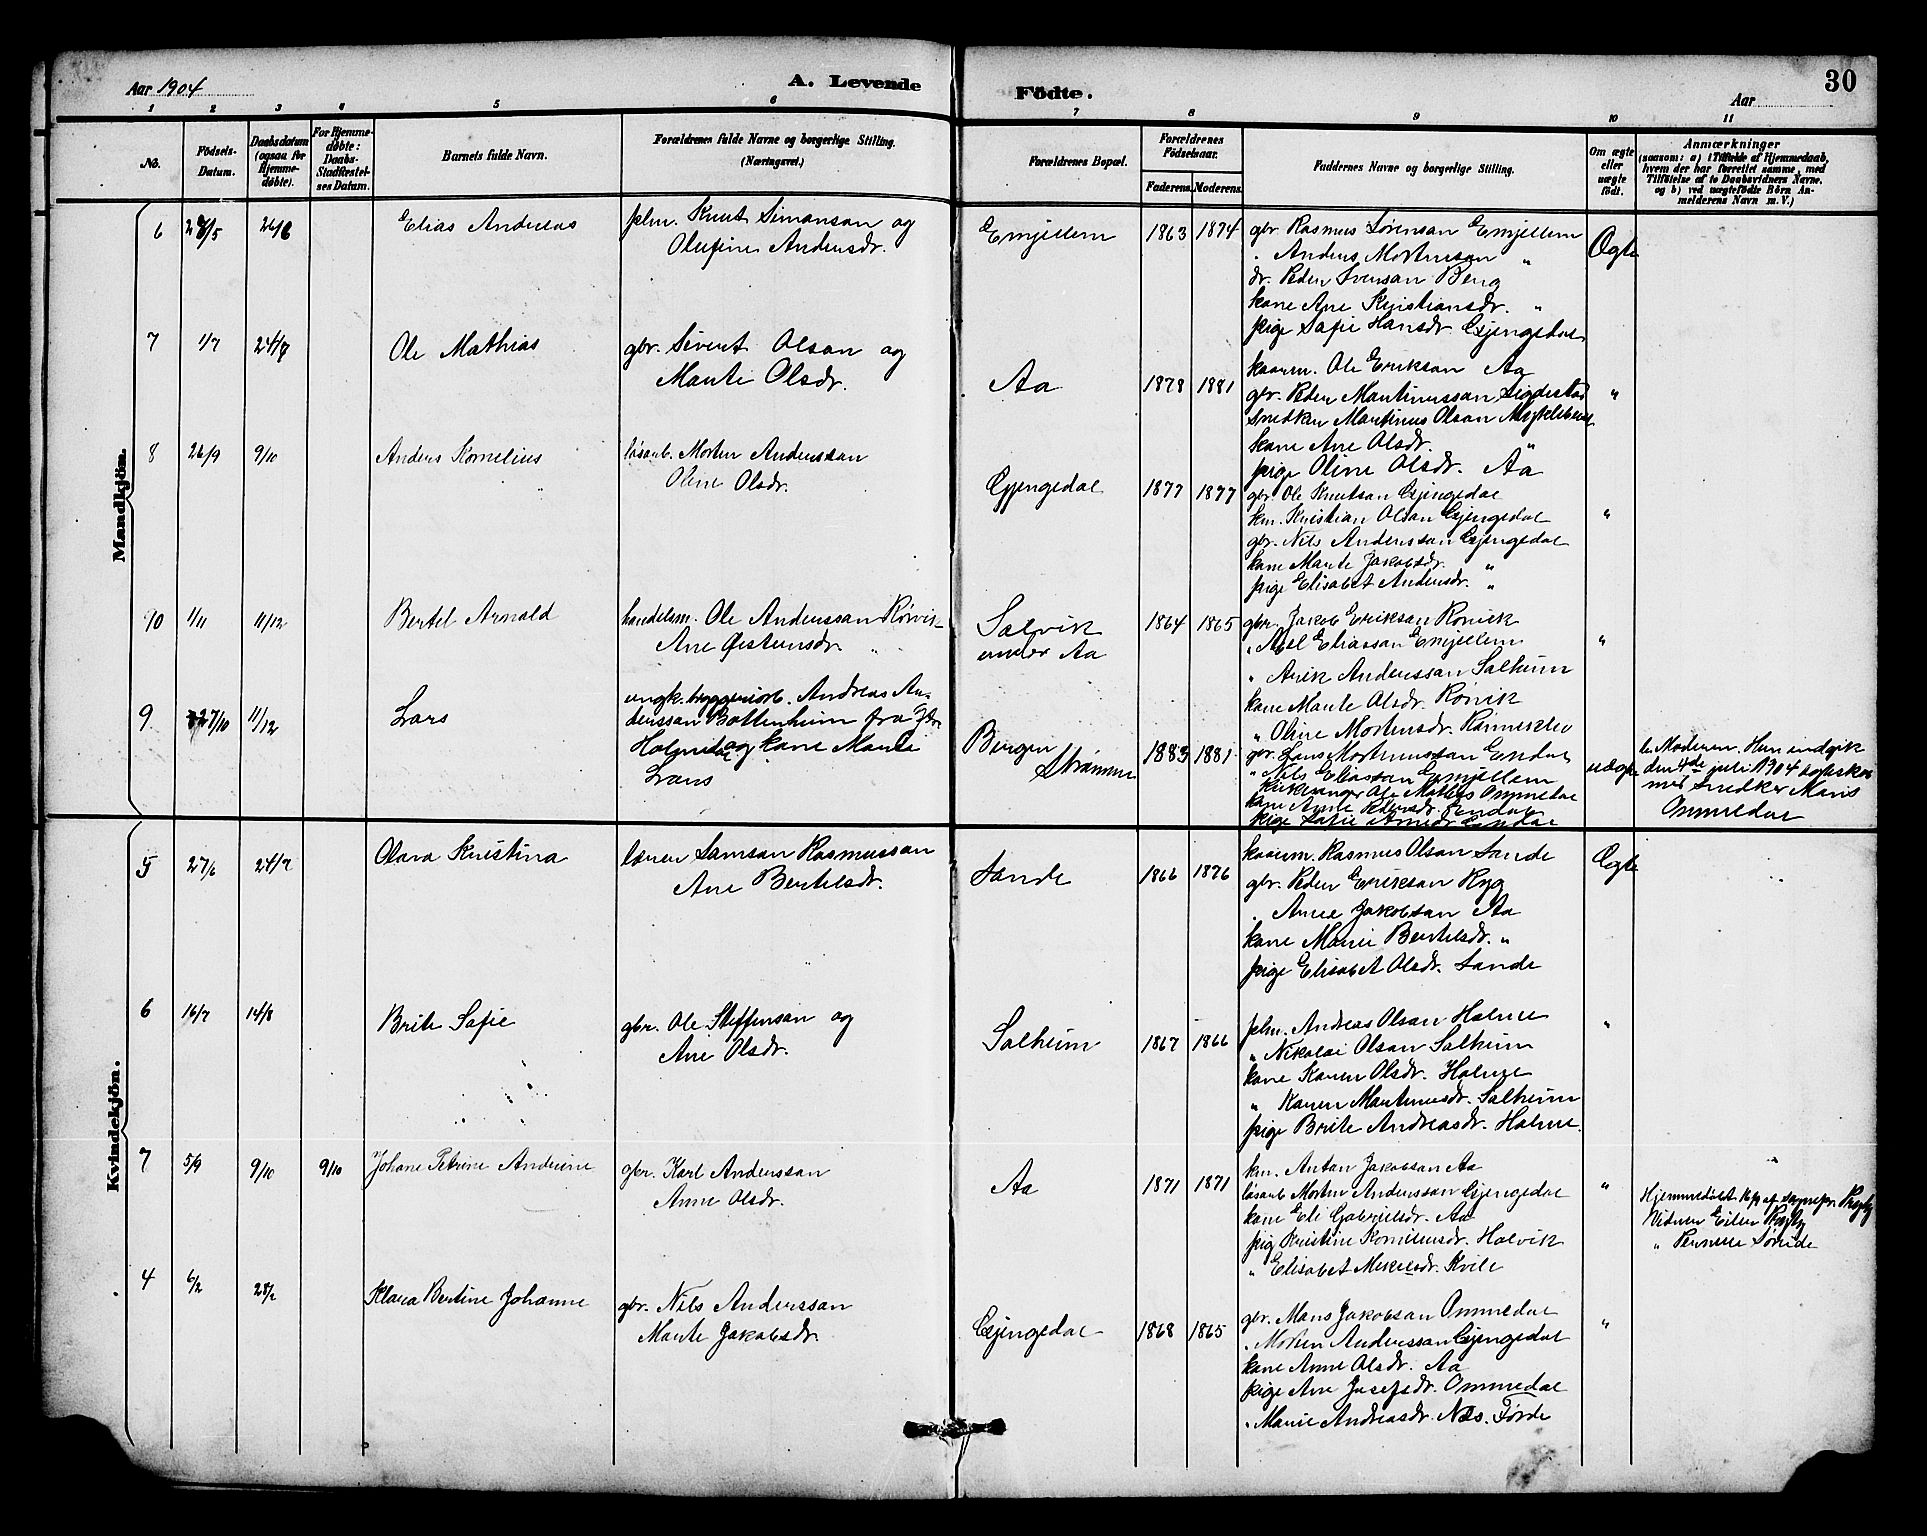 Aar 1904
A. Levende
Födte.
Aar
30
1 2 3 4 5 6 7 8 9 10 11
No.
Födsels-
Datum.
Daabsdatum
(ogsaa for
Hjemme-
döbte).
For Hjemme-
döbte:
Daabs-
Stadfæstel-
ses Datum.
Barnets fulde Navn.
Forældrenes fulde Navne og borgerlige Stilling.
(Næringsvei.)
Forældrenes Bopæl.
Forældrenes
Födselsaar.
Faderens. Moderens.
Faddernes Navne og borgerlige Stilling.
Om ægte
eller
uægte
födt.
Anmærkninger
(saasom: a) i Tilfælde af Hjemmedaab,
hvem der har forrettet samme, med
Tilföielse af to Daabsvidners Navne,
og b) ved uægtefödte Börn An-
melderens Navn m. V.)
Mandkjön.
6 28/5 26/6 Elias Andreas
plm. Knut Simonsan og
Olufine Andersdr.
Emjellem 1863 1874
gbr. Rasmus Sørensan Emjellem
" Anders Mortensan "
dr. Peder Iversan Berg
kone Ane Kristiansdr. "
pige Sofie Hansdr Gjengedal
Ægte
7 1/7 24/7 Ole Mathias
gbr. Sivert Olsan og
Marite Olsdr.
Aa 1878 1881
kaarm. Ole Eriksan Aa
gbr. Peder Martinussan Sigdestad
Snedker Martinus Olsan Myklebust
kone Ane Olsdr. "
pige Oline Olsdr. Aa
"
8 26/9 9/10 Anders Kornelius
løsarb. Morten Anderssan
Oline Olsdr.
Gjengedal 1877 1877
gbr. Ole Knutsan Gjengedal
km. Kristian Olsan Gjengedal
gbr. Nils Anderssan Gjengedal
kone Marite Jakobsdr. "
pige Elisabet Andersdr. "
"
10 1/11 11/12 Bertel Arnold
handelsm. Ole Anderssan Rørvik
Ane Øistensdr. "
Solvik
under Aa
1864 1865
gbr. Jakob Eriksan Rørvik
" Abel Eliassan Emjellem
" Anderssan Solheim
kone Marite Olsdr. Rørvik
" Oline Mortensdr.
"
9. 27/10 11/12 Lars
ungk. Andreas An-
derssan Bottenheim fra
og kone Marite
Lars
Bergen
Strømme
1883 1881
gbr. Lars Mortenussan Endal
" Nils Eliassan Emjellem
Kirkesanger Ole Ommedal
kone Anne Pedersdr. Endal
pige Sofie Endal
uægte
Moderen. Hun indgik
den 4de juli 1904
med Snedker Mons
Ommedal
Kvindekjön.
5 27/6 24/7 Olava Kristina
lærer Samsan Rasmussan
Ane Bertelsdr.
Sande 1866 1876
kaarm. Rasmus Olsan Sande
gbr. Peder Eriksan Ryg
" Anne Jakobsan Aa
kone Marie Bertelsdr. "
pige Elisabet Olsdr. Sande
Ægte
6 16/7 14/8 Brite Sofie
gbr. Ole Steffensan og
Ane Olsdr.
Solheim 1867 1866
plm. Andreas Olsan Holme
" Nikolai Olsan Solheim
kone Karen Olsdr. Holme
" Karen Martinusdr. Solheim
pige Brite Andreasdr. Holme.
"
7 5/9 9/10 9/10 Johane Petrine Andrine
gbr. Karl Anderssan
Anne Olsdr.
Aa 1871 1871
km. Anton Jakobsan Aa
løsarb Morten Anderssan Gjengedal
kone Eli Gabrielsdr. Aa
pig Kristine Korneliusdr. Holvik
" Elisabet Mikelsdr. Kvile
"
Hjemmedøbt af sognepr.
Vidner
"
4 6/2 28/2 Klara Bertine Johanne
gbr. Nils Anderssan
Marite Jakobsdr.
Gjengedal 1868 1865
gbr. Mons Jakobsan Ommedal
" Morten Anderssan Gjengedal
kone Anne Olsdr. Aa
pige Ane Josefsdr. Ommedal
" Marie Andreasdr. Nes. Førde
"